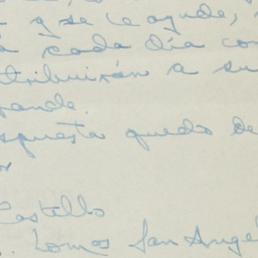 y se le ayude,
a cada día con
tribuirán a su
rande.
spuesta quedo de
Castello
. Lomas San Angel